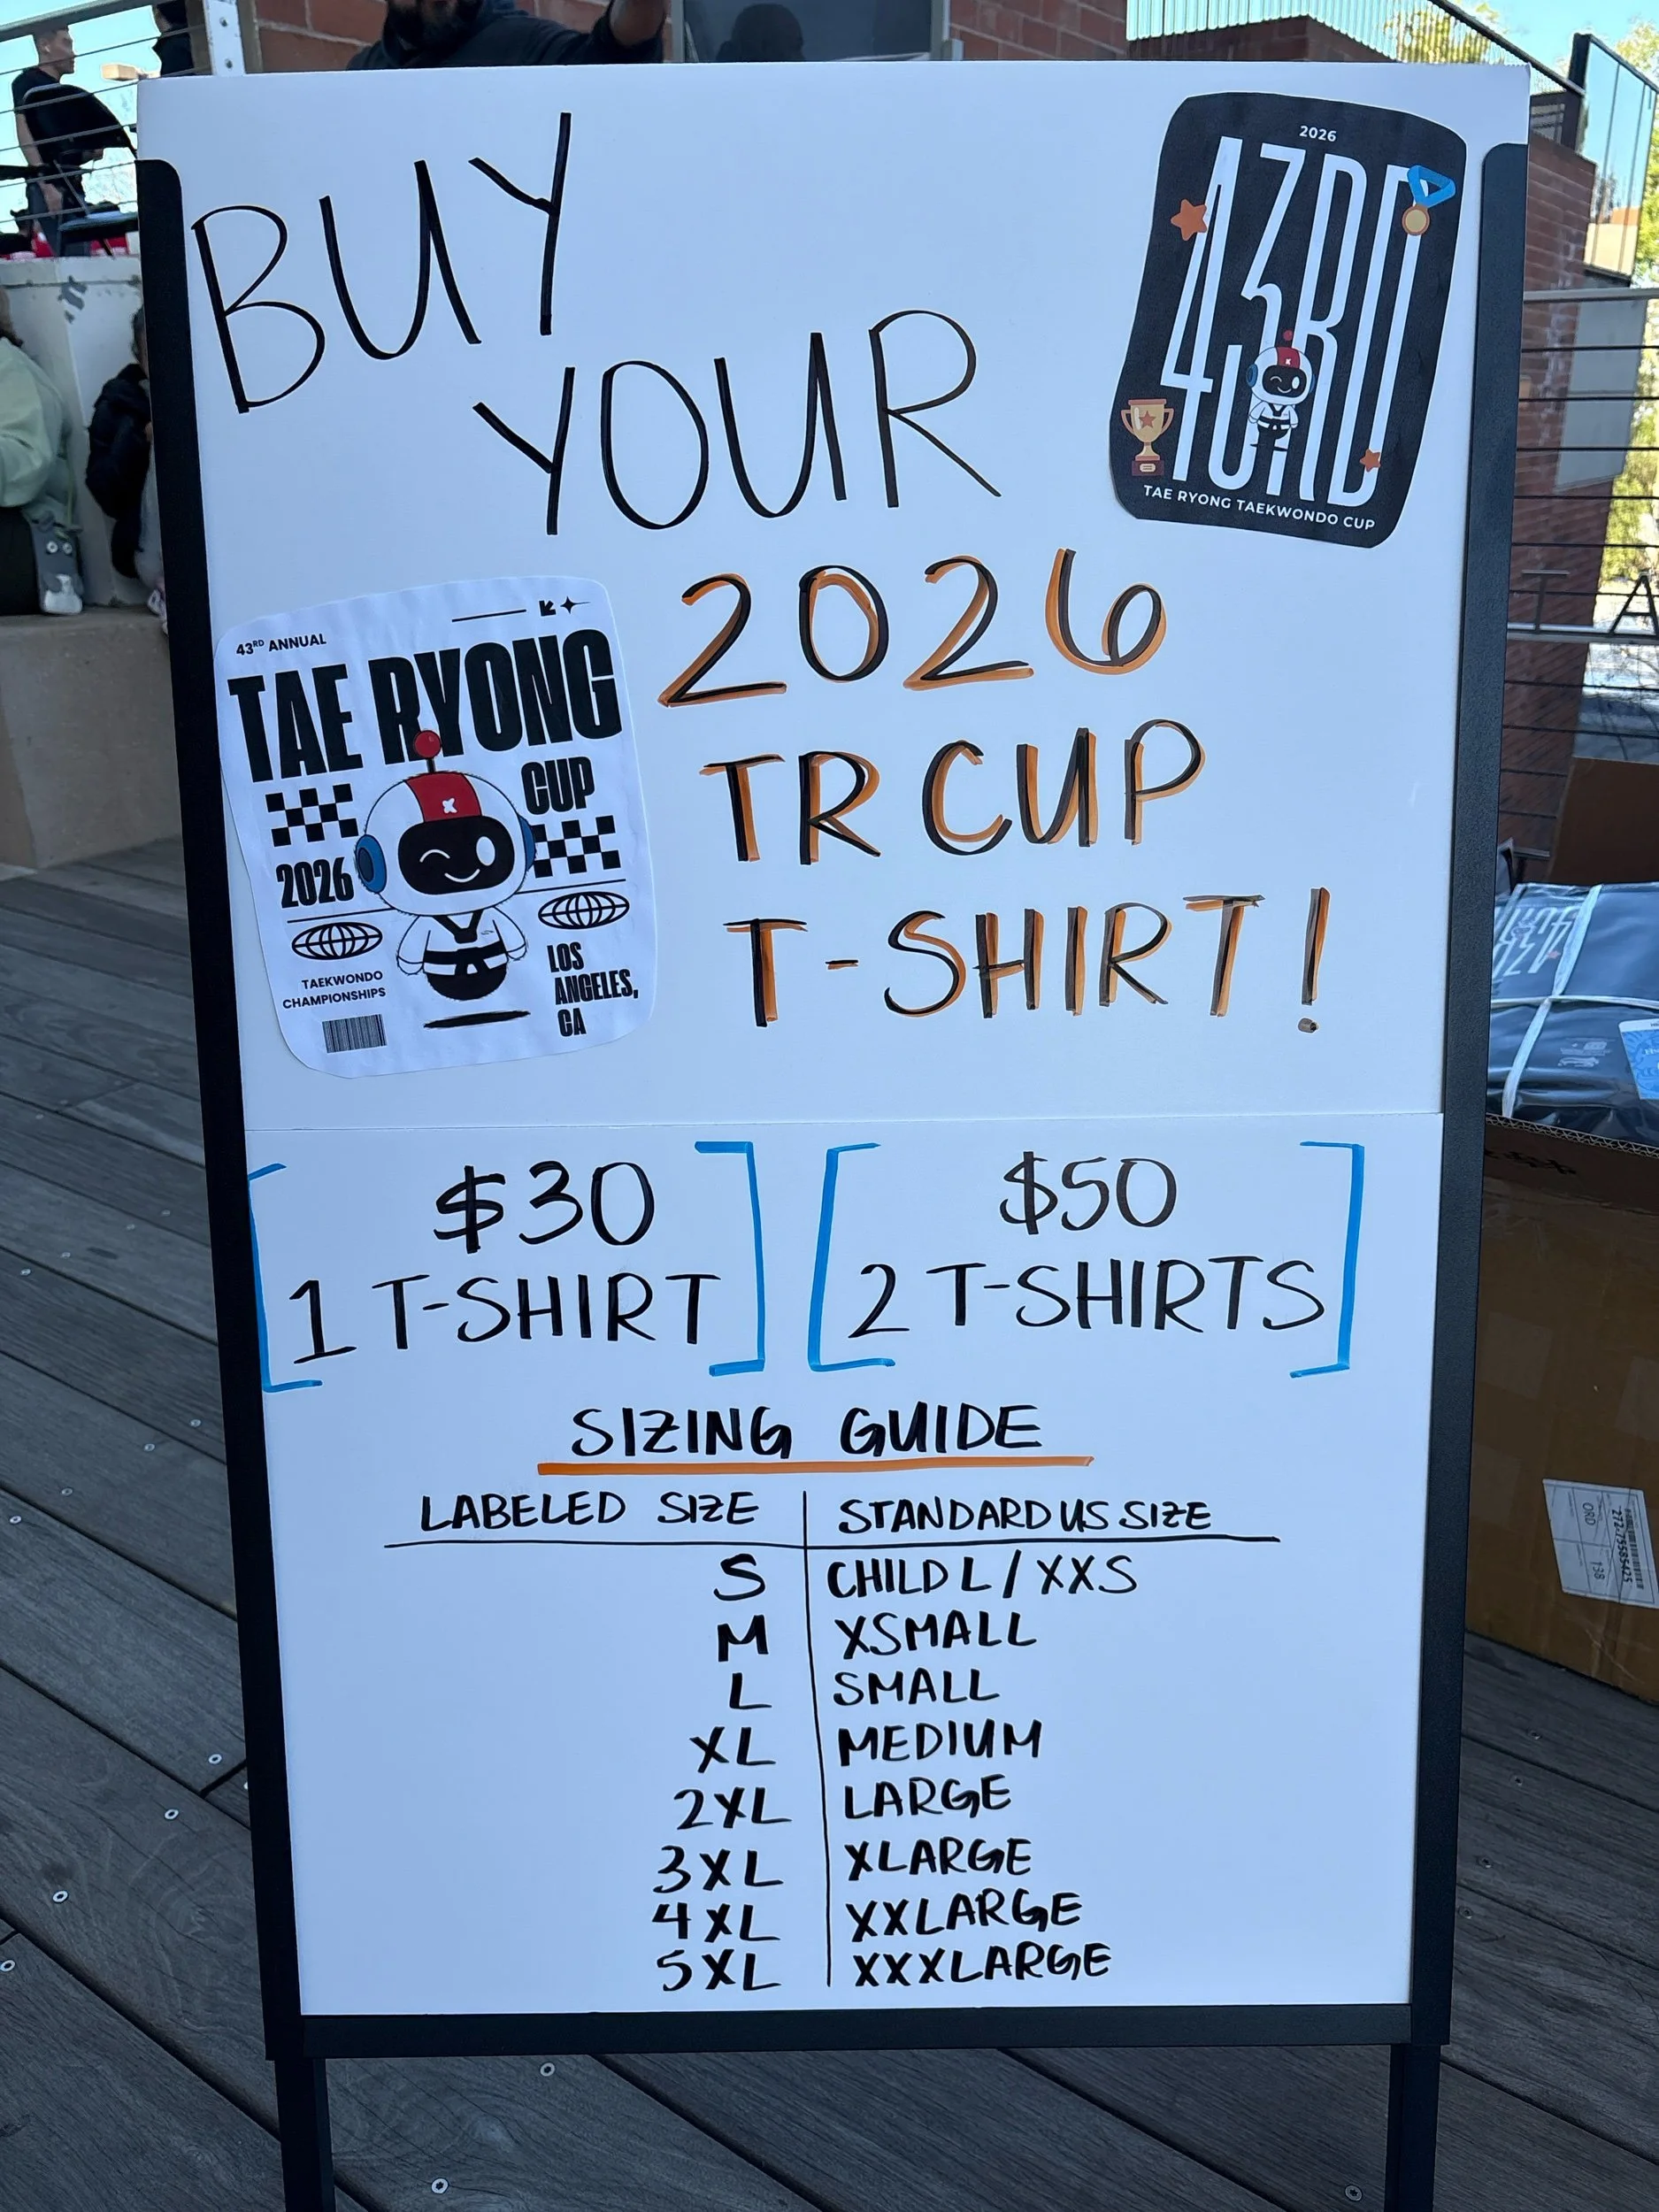 BUY
YOUR
2026
43RD
TAE RYONG TAEKWONDO CUP
2026
TR CUP
T-SHIRT!
43RD ANNUAL
TAE RYONG
CUP
2026
TAEKWONDO
CHAMPIONSHIPS
LOS
ANGELES,
CA
$30
1 T-SHIRT
$50
2 T-SHIRTS
SIZING GUIDE
LABELED SIZE STANDARD US SIZE
S CHILD L / XXS
M XSMALL
L SMALL
XL MEDIUM
2XL LARGE
3XL XLARGE
4XL XXLARGE
5XL XXXLARGE
43RD
ORD
138